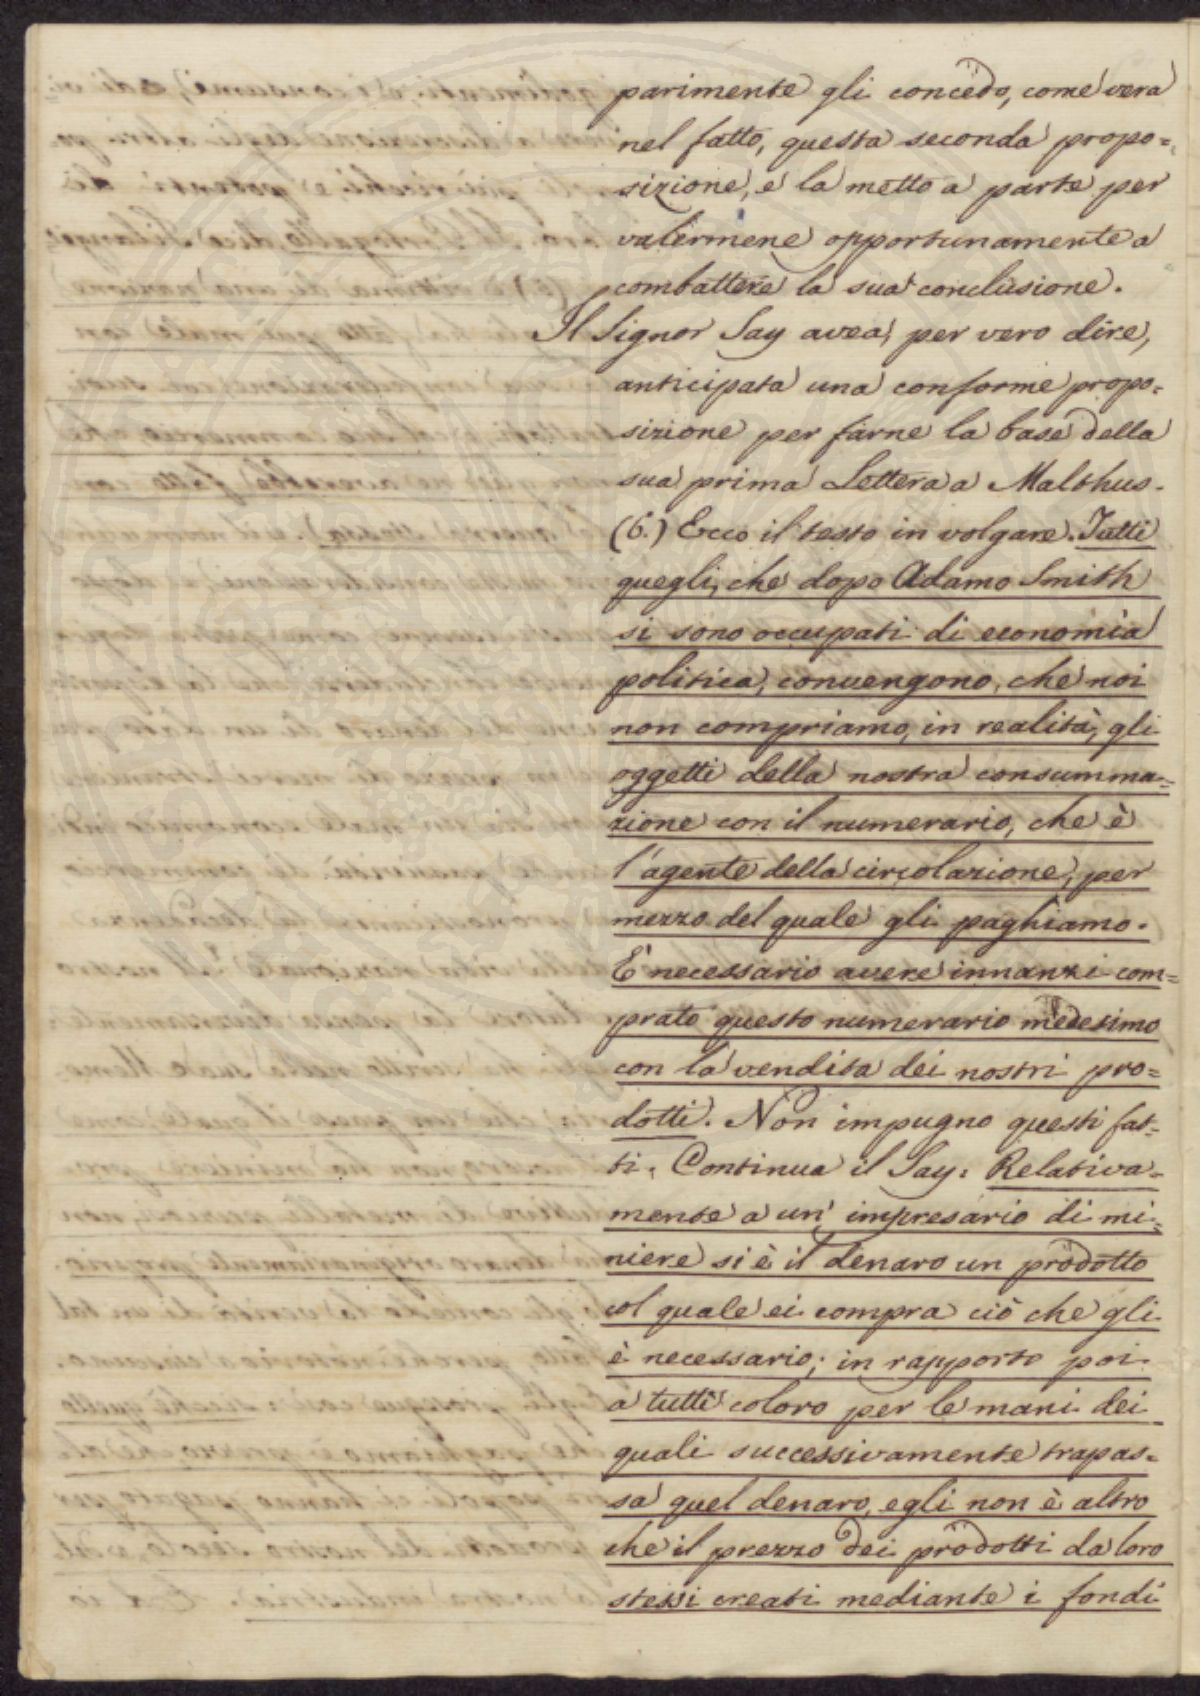 parimente gli concedo, come vera
nel fatto, questa seconda propo=
sizione, e la metto a parte per
valermene opportunamente a
combattere la sua conclusione.
Il Signor Say avea, per vero dire,
anticipata una conforme propo=
sizione per farne la base della
sua prima Lettera a Malthus.
(6.) Ecco il testo in volgare. Tutti
quegli, che dopo Adamo Smith
si sono occupati di economia
politica, convengono, che noi
non compriamo, in realità, gli
oggetti della nostra consumma=
zione con il numerario, che è
l'agente della circolazione, per
mezzo del quale gli paghiamo.
E' necessario avere innanzi com=
prato questo numerario medesimo
con la vendita dei nostri pro=
dotti. Non impugno questi fat=
ti. Continua il Say: Relativa=
mente a un' impresario di mi=
niere si è il denaro un prodotto
col quale ei compra ciò che gli
è necessario; in rapporto poi
a tutti coloro per le mani dei
quali successivamente trapas=
sa quel denaro, egli non è altro
che il prezzo dei prodotti da loro
stessi creati mediante i fondi